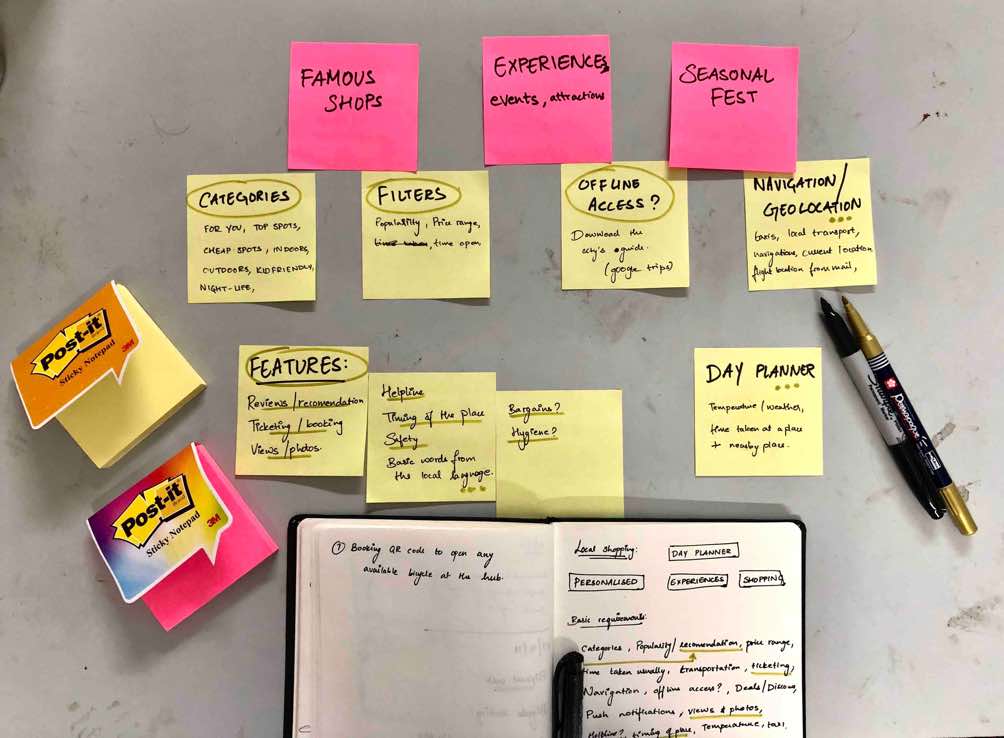 FAMOUS
SHOPS
EXPERIENCES
events, attractions
SEASONAL
FEST
CATEGORIES
FOR YOU, TOP SPOTS,
CHEAP SPOTS, INDOORS,
OUTDOORS, KIDFRIENDLY,
NIGHT-LIFE,
FILTERS
Popularility, Price range,
time taken, time open
OFFLINE
ACCESS?
Download the
city's guide.
(google trips)
NAVIGATION/
GEOLOCATION
taxis, local transport,
navigation, current location
flight location from mail,
Post-it
Sticky Notepad
3M
Post-it
Sticky Notepad
3M
FEATURES:
Reviews/recomendation
Ticketing/booking
Views/photos.
Helpline
Timing of the place
Safety
Basic words from
the local language.
Bargains?
Hygiene?
DAY PLANNER
Temperature/weather,
time taken at a place
+ nearby place.
① Booking QR code to open any
available bicycle at the hub.
Local shopping:
DAY PLANNER
PERSONALISED
EXPERIENCES
SHOPPING
Basic requirements:
Categories, Popularity/recomendation, price range,
time taken usually, transportation, ticketing,
Navigation, offline access?, Deals/Discou
Push notifications, views & photos,
Helpline? timing of place, Temperature, taxi,